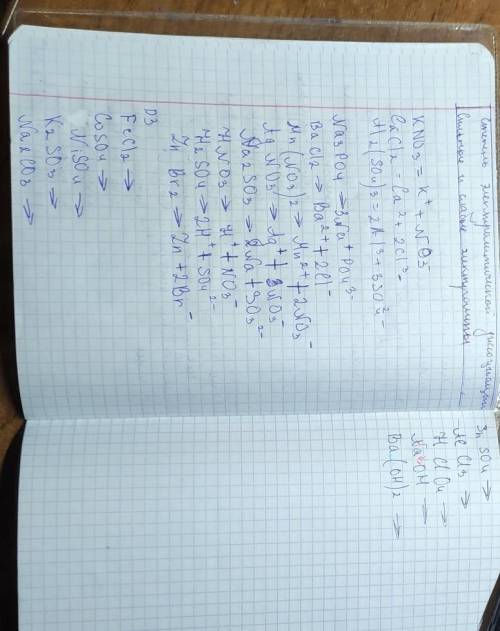 Степень электролитической диссоциации
Сильные и слабые электролиты
KNO3 = K+ + NO3-
CaCl2 = Ca2+ + 2Cl-
Al2(SO4)3 = 2Al3+ + 3SO42-
Na3PO4 → 3Na+ + PO43-
BaCl2 → Ba2+ + 2Cl-
Mn(NO3)2 → Mn2+ + 2NO3-
AgNO3 → Ag+ + NO3-
Na2SO3 → 2Na + SO32-
HNO3 → H+ + NO3-
H2SO4 → 2H+ + SO42-
ZnBr2 → Zn + 2Br-
ДЗ
FeCl2 →
CoSO4 →
NiSO4 →
K2SO3 →
Na2CO3 →
ZnSO4 →
AlCl3 →
HClO4 →
NaOH →
Ba(OH)2 →